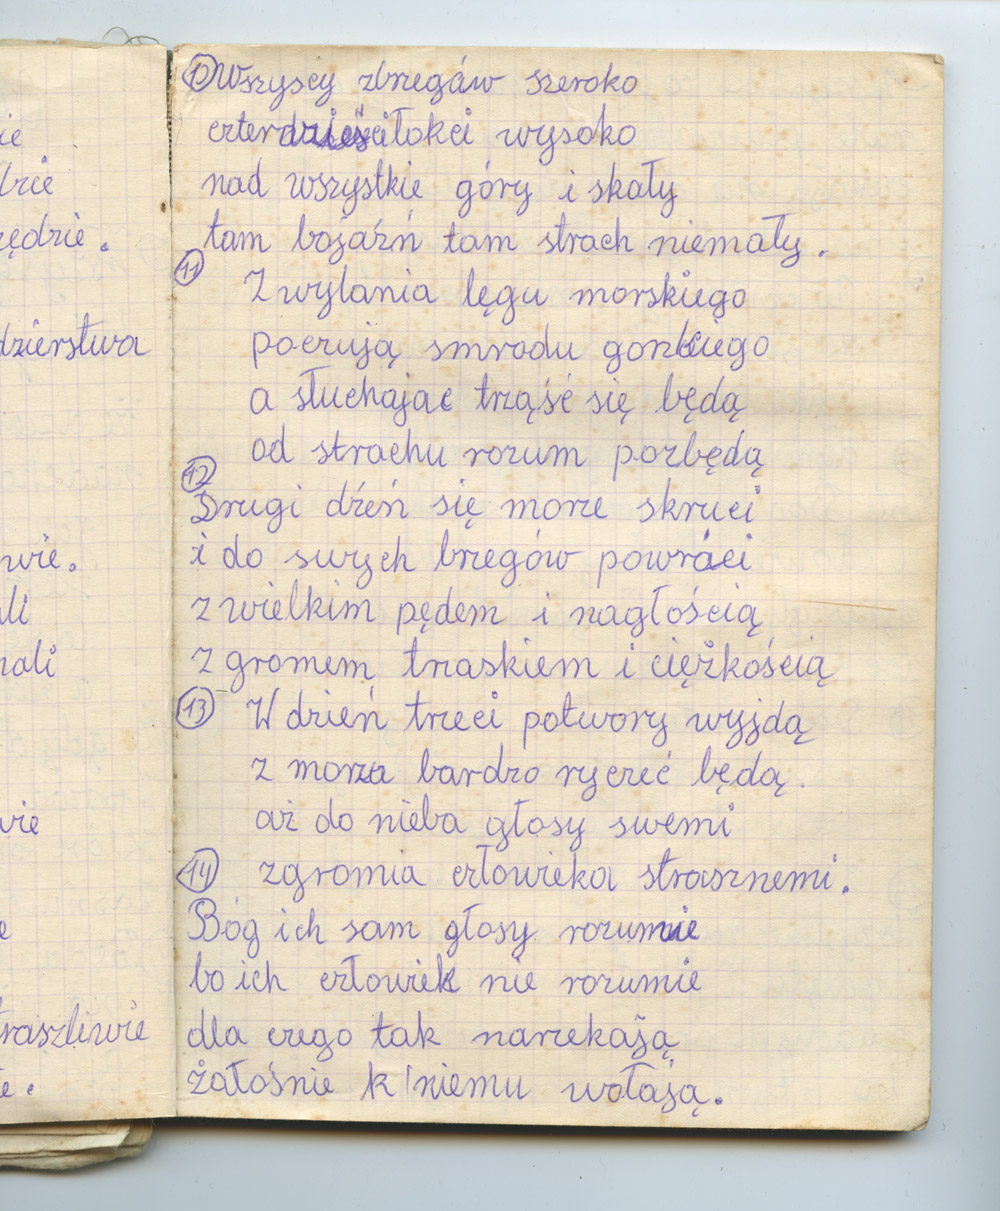 ie
dzie
zędzie.
dzierstwa
wie.
ali
nali
wie
e
traszliwie
ie.
10 Wszyscy zbrzegów szeroko
czterdzieści łokci wysoko
nad wszystkie góry i skały
tam bojaźń tam strach niemały.
11
Z wylania lęgu morskiego
poczują smrodu gorzkiego
a słuchając trząść się będą
od strachu rozum pozbędą
12
Drugi dźeń się morze skruci
i do swych brzegów powróci
z wielkim pędem i nagłością
z gromem trzaskiem i ciężkością
13 W dzień trzeci potwory wyjdą
z morza bardzo ryczeć będą.
aż do nieba głosy swemi
14 zgromia człowieka strasznemi.
Bóg ich sam głosy rozumie
bo ich człowiek nie rozumie
dla czego tak narzekają
żałośnie k'niemu wołają.